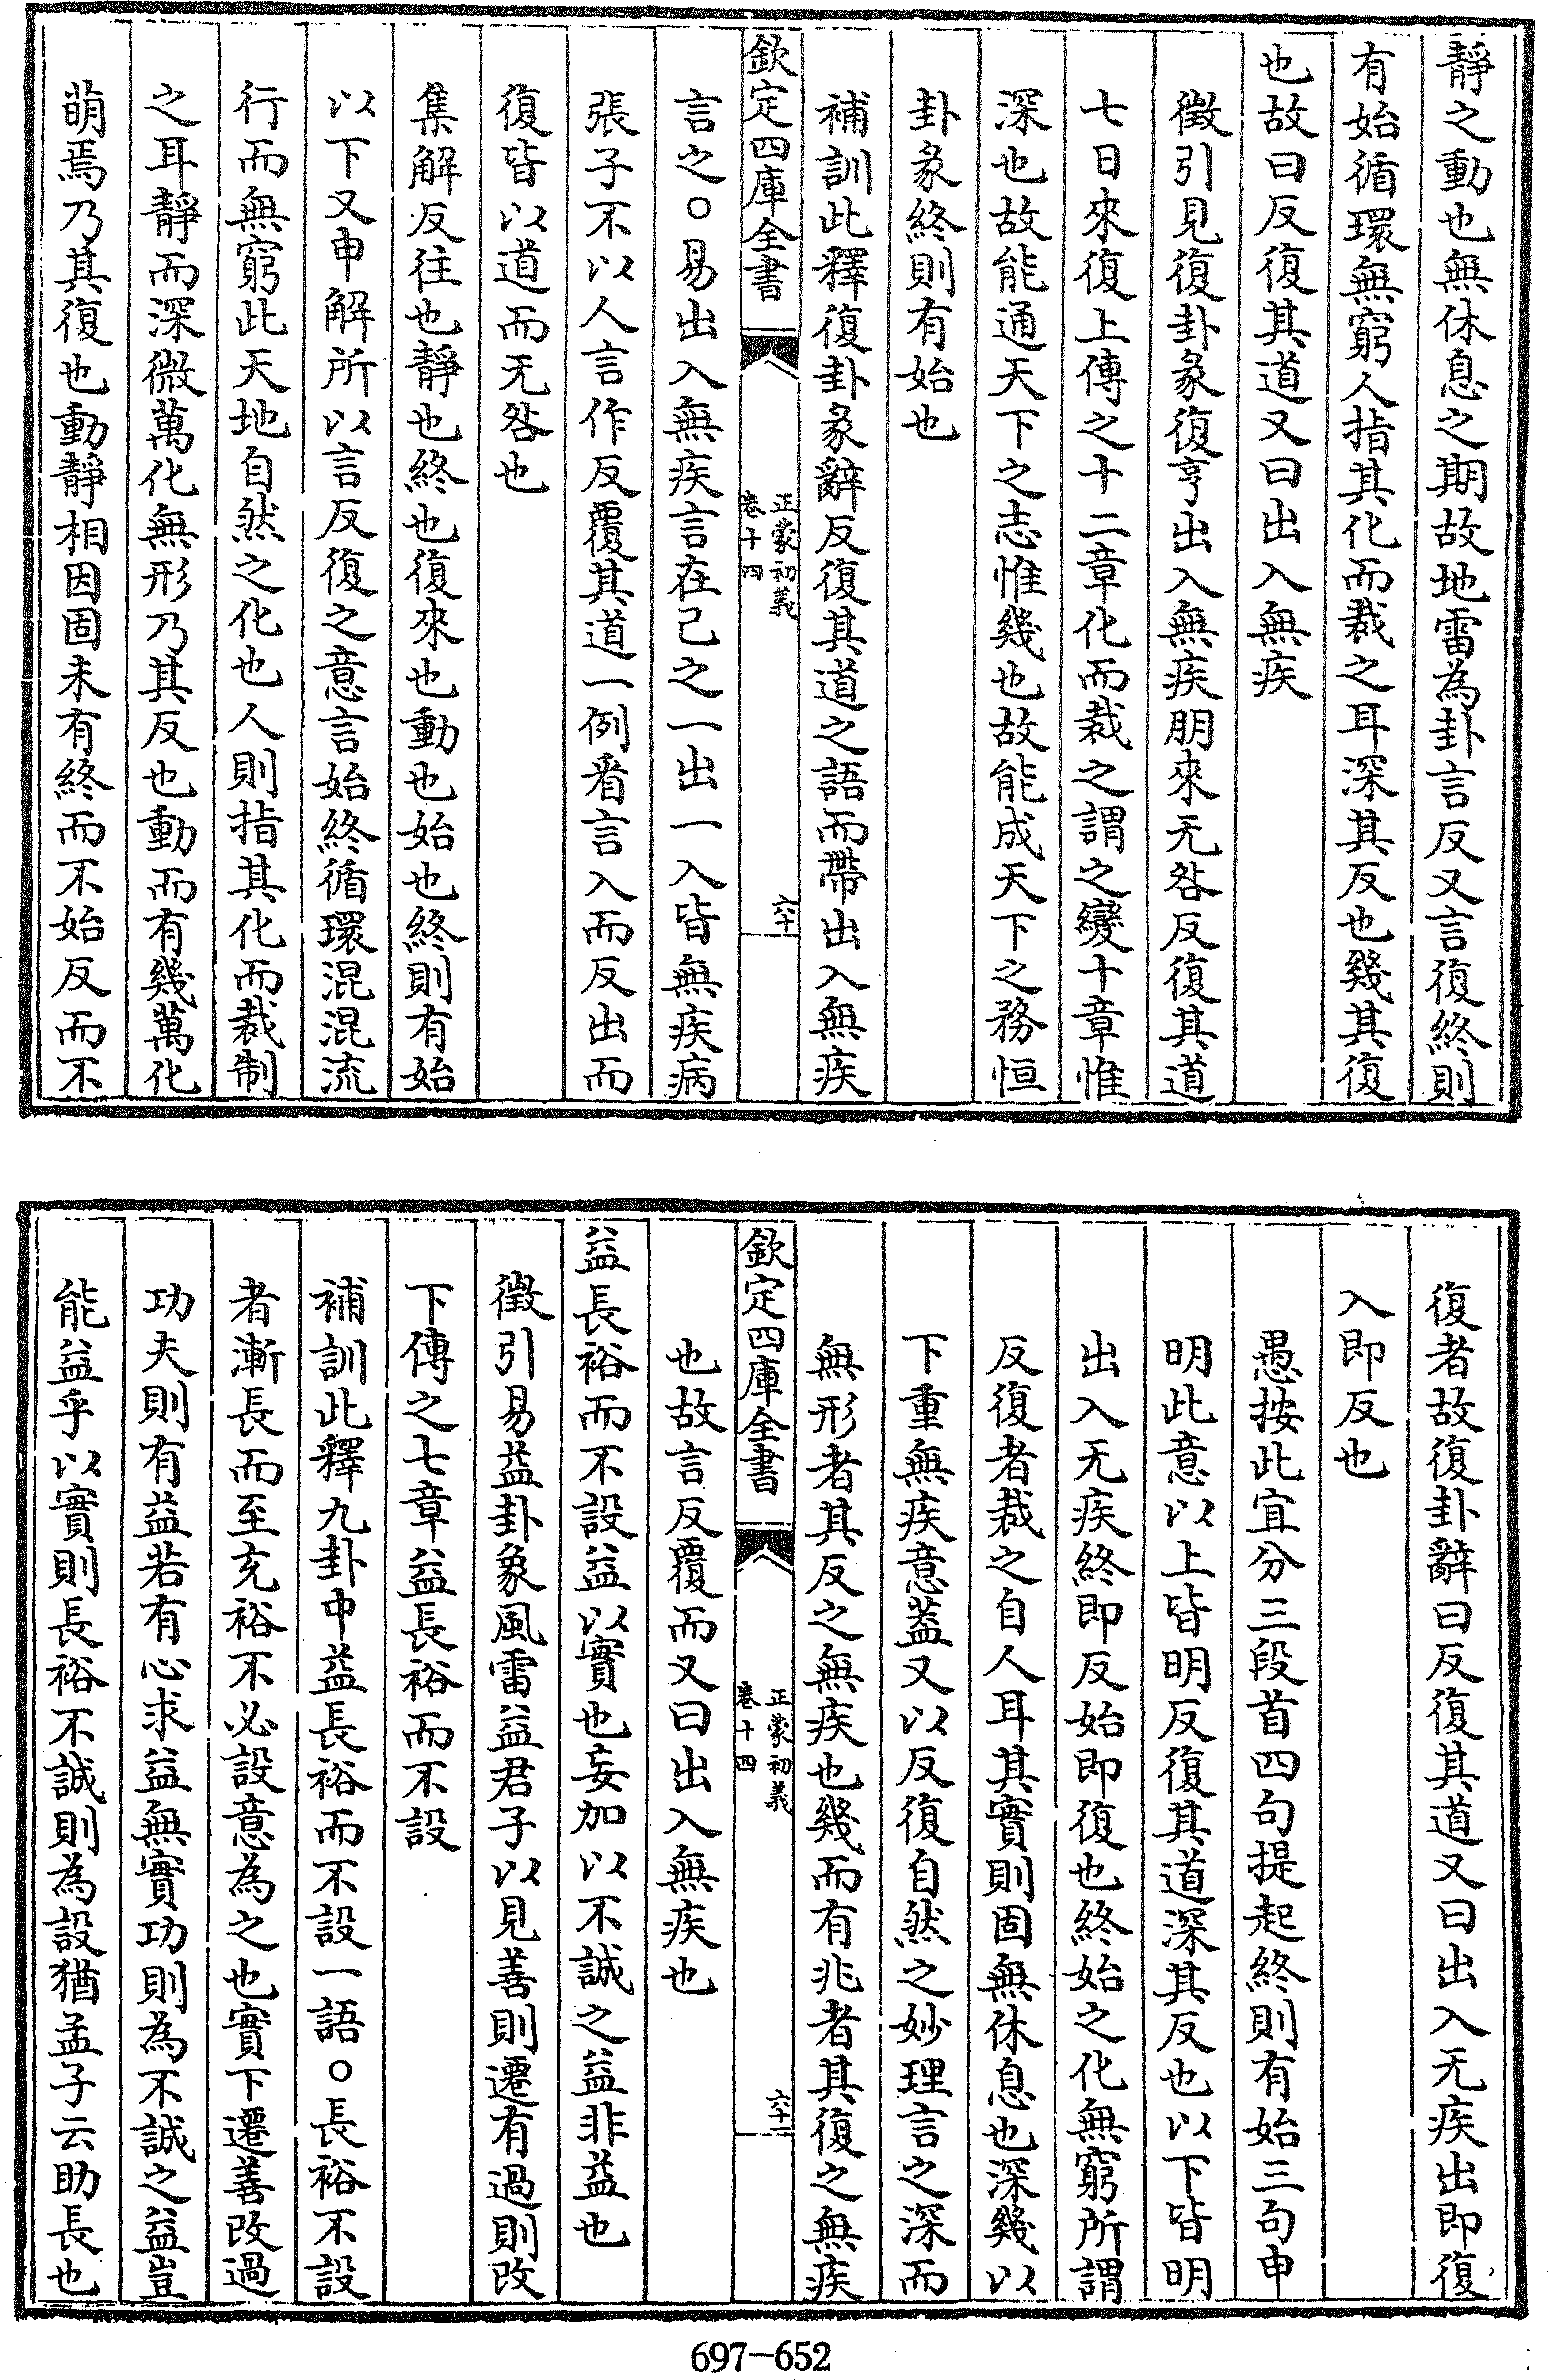 靜之動也無休息之期故地雷為卦言反又言復終則
有始循環無窮人指其化而裁之耳深其反也幾其復
也故曰反復其道又曰出入無疾
徵引見復卦彖復亨出入無疾朋來无咎反復其道
七日來復上傳之十二章化而裁之謂之變十章惟
深也故能通天下之志惟幾也故能成天下之務恒
卦彖終則有始也
補訓此釋復卦彖辭反復其道之語而帶出入無疾
欽定四庫全書
正蒙初義
卷十四
六十
言之○易出入無疾言在己之一出一入皆無疾病
張子不以人言作反覆其道一例看言入而反出而
復皆以道而无咎也
集解反往也靜也終也復來也動也始也終則有始
以下又申解所以言反復之意言始終循環混混流
行而無窮此天地自然之化也人則指其化而裁制
之耳靜而深微萬化無形乃其反也動而有幾萬化
萌焉乃其復也動靜相因固未有終而不始反而不
復者故復卦辭曰反復其道又曰出入无疾出即復
入即反也
愚按此宜分三段首四句提起終則有始三句申
明此意以上皆明反復其道深其反也以下皆明
出入无疾終即反始即復也終始之化無窮所謂
反復者裁之自人耳其實則固無休息也深幾以
下重無疾意蓋又以反復自然之妙理言之深而
無形者其反之無疾也幾而有兆者其復之無疾
欽定四庫全書
正蒙初義
卷十四
六十一
也故言反覆而又曰出入無疾也
益長裕而不設益以實也妄加以不誠之益非益也
徵引易益卦象風雷益君子以見善則遷有過則改
下傳之七章益長裕而不設
補訓此釋九卦中益長裕而不設一語○長裕不設
者漸長而至充裕不必設意為之也實下遷善改過
功夫則有益若有心求益無實功則為不誠之益豈
能益乎以實則長裕不誠則為設猶孟子云助長也
697-652